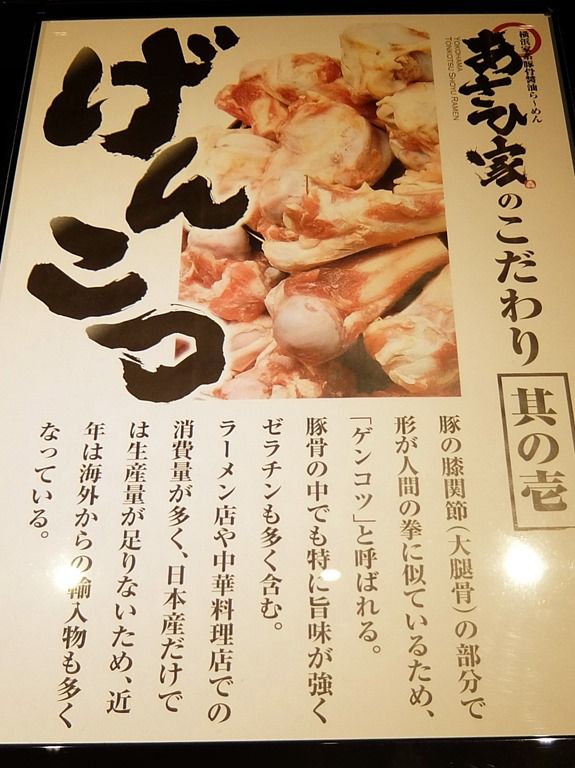 横浜家系豚骨醤油ら〜めん
あさひ家のこだわり
YOKOHAMA
TONKOTSU SHOYU RAMEN
其の壱
げんこつ
豚の膝関節(大腿骨)の部分で
形が人間の拳に似ているため、
「ゲンコツ」と呼ばれる。
豚骨の中でも特に旨味が強く
ゼラチンも多く含む。
ラーメン店や中華料理店での
消費量が多く、日本産だけで
は生産量が足りないため、近
年は海外からの輸入物も多く
なっている。